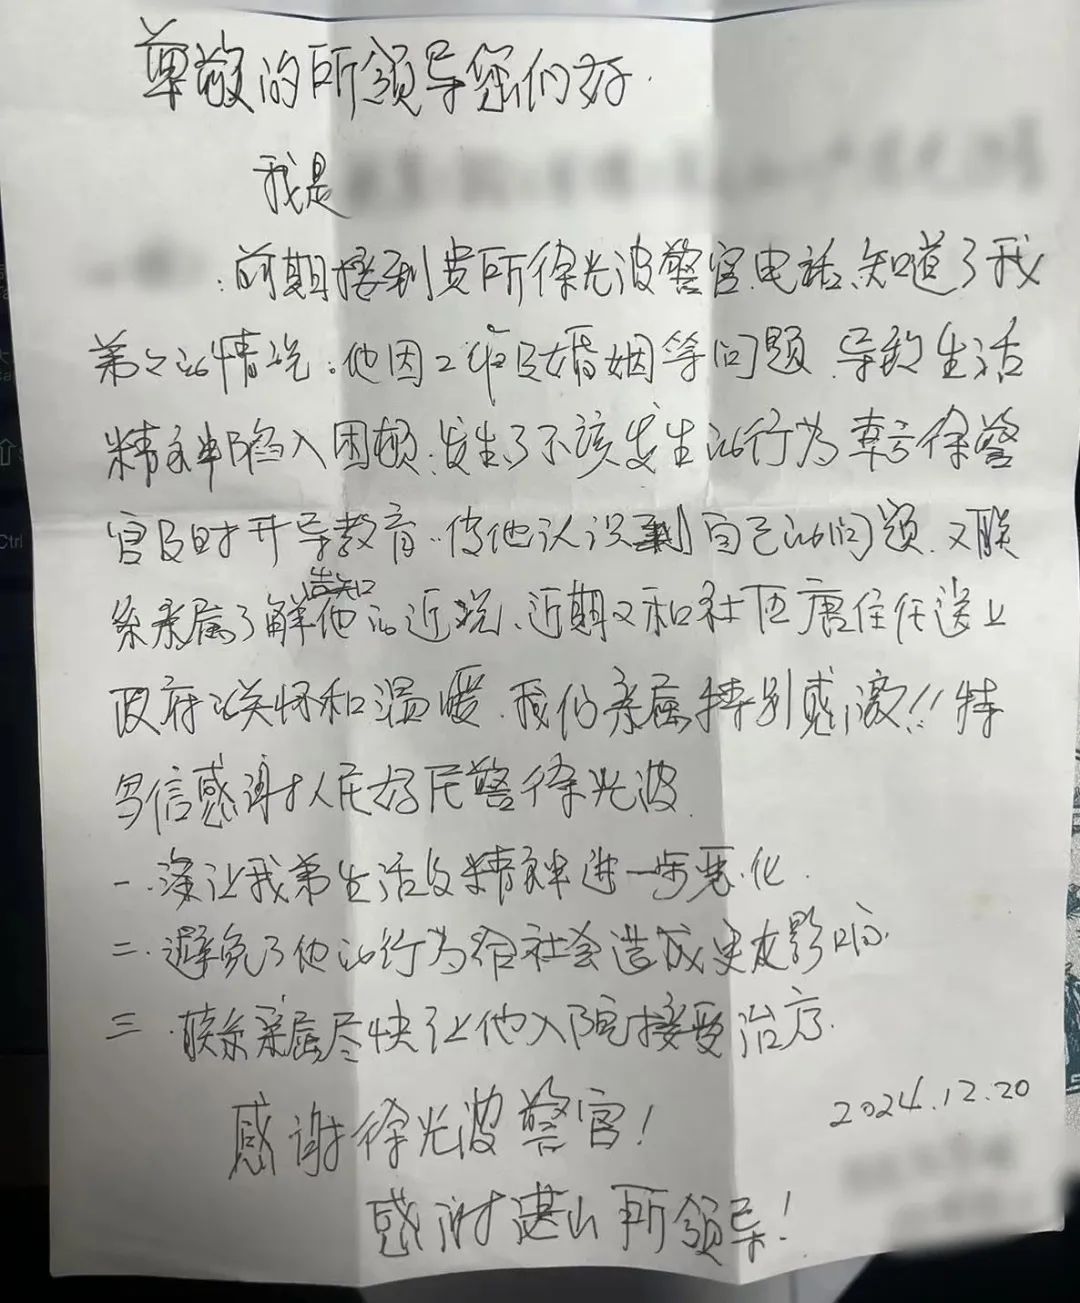 尊敬的所领导您们好.
我是
前期接到贵所徐光波警官电话、知道了我
弟弟的情况。他因工作及婚姻等问题、导致生活
精神陷入困顿.发生了不该发生的行为幸亏徐警
官及时开导教育.使他认识到自己的问题.又联
告知
系亲属了解他的近况、近期又和社区唐住任送上
政府关怀和温暖.我们亲属特别感激!!特
写信感谢人民好民警徐光波.
一.没让我弟生活及精神进一步恶化.
二.避免了他的行为给社会造成更大影响.
三.联系亲属尽快让他入院接受治疗.
2024.12.20
感谢徐光波警官!
感谢湛山所领导!